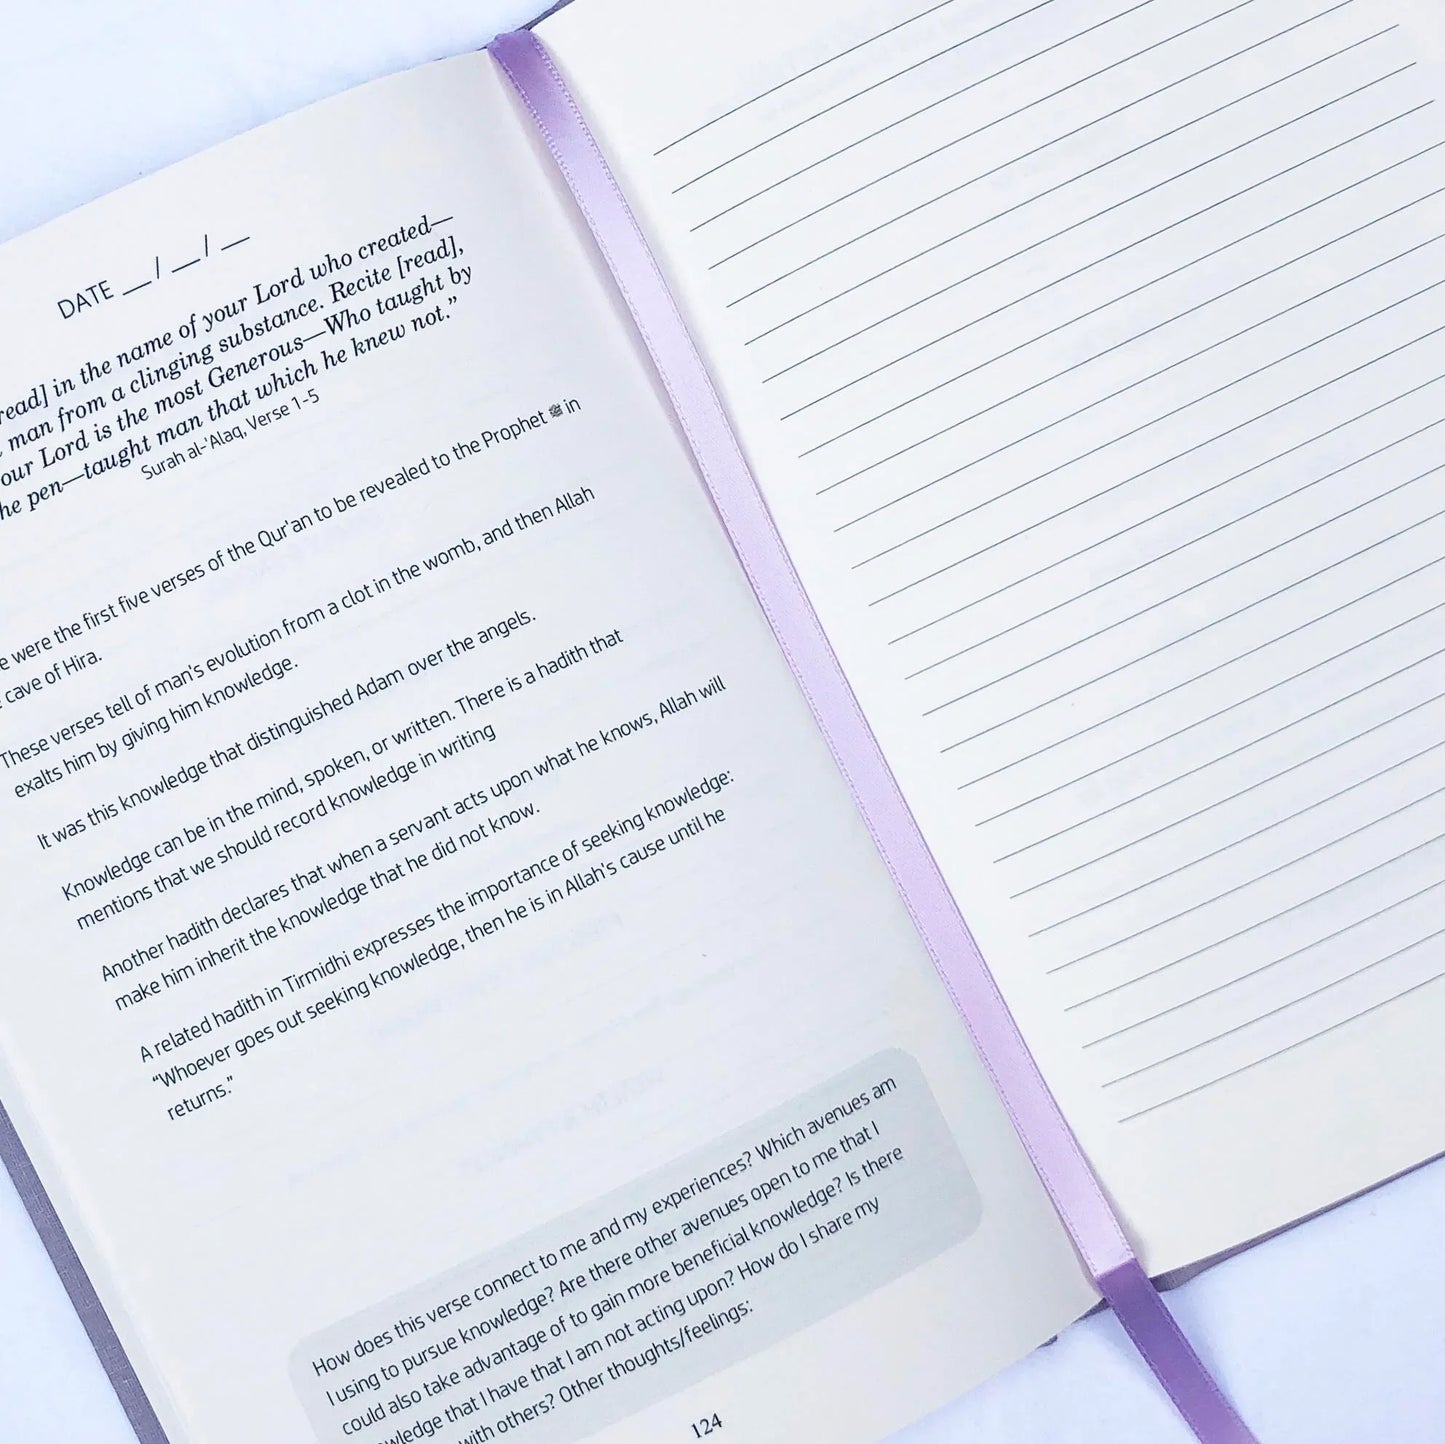 DATE __/__/__
read] in the name of your Lord who created—
man from a clinging substance. Recite [read],
our Lord is the most Generous—Who taught by
he pen—taught man that which he knew not.”
Surah al-'Alaq, Verse 1-5
e were the first five verses of the Qur'an to be revealed to the Prophet ﷺ in
cave of Hira.
These verses tell of man's evolution from a clot in the womb, and then Allah
exalts him by giving him knowledge.
It was this knowledge that distinguished Adam over the angels.
Knowledge can be in the mind, spoken, or written. There is a hadith that
mentions that we should record knowledge in writing
Another hadith declares that when a servant acts upon what he knows, Allah will
make him inherit the knowledge that he did not know.
A related hadith in Tirmidhi expresses the importance of seeking knowledge:
“Whoever goes out seeking knowledge, then he is in Allah's cause until he
returns.”
How does this verse connect to me and my experiences? Which avenues am
I using to pursue knowledge? Are there other avenues open to me that I
could also take advantage of to gain more beneficial knowledge? Is there
wledge that I have that I am not acting upon? How do I share my
with others? Other thoughts/feelings:
124